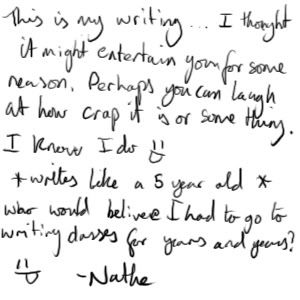 This is my writing... I thought
it might entertain you for some
reason. Perhaps you can laugh
at how crap it is or some thing.
I know I do =D
*writes like a 5 year old *
who would belivee I had to go to
writing classes for years and years?
=D -Nathe